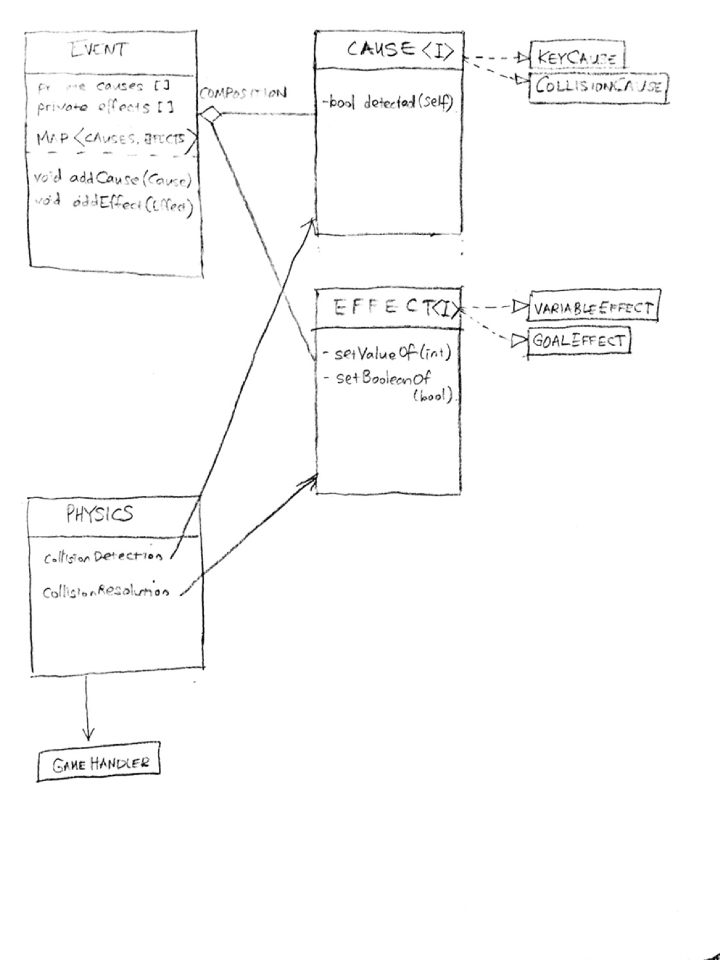 EVENT
causes []
private effects []
MAP <CAUSES, EFFECTS>
void addCause (Cause)
void addEffect (Effect)
COMPOSITION
CAUSE <I>
-bool detected (self)
KEYCAUSE
COLLISIONCAUSE
EFFECT <I>
- setValueOf (int)
- setBooleanOf
(bool)
VARIABLEEFFECT
GOALEFFECT
PHYSICS
CollisionDetection
CollisionResolution
GAMEHANDLER